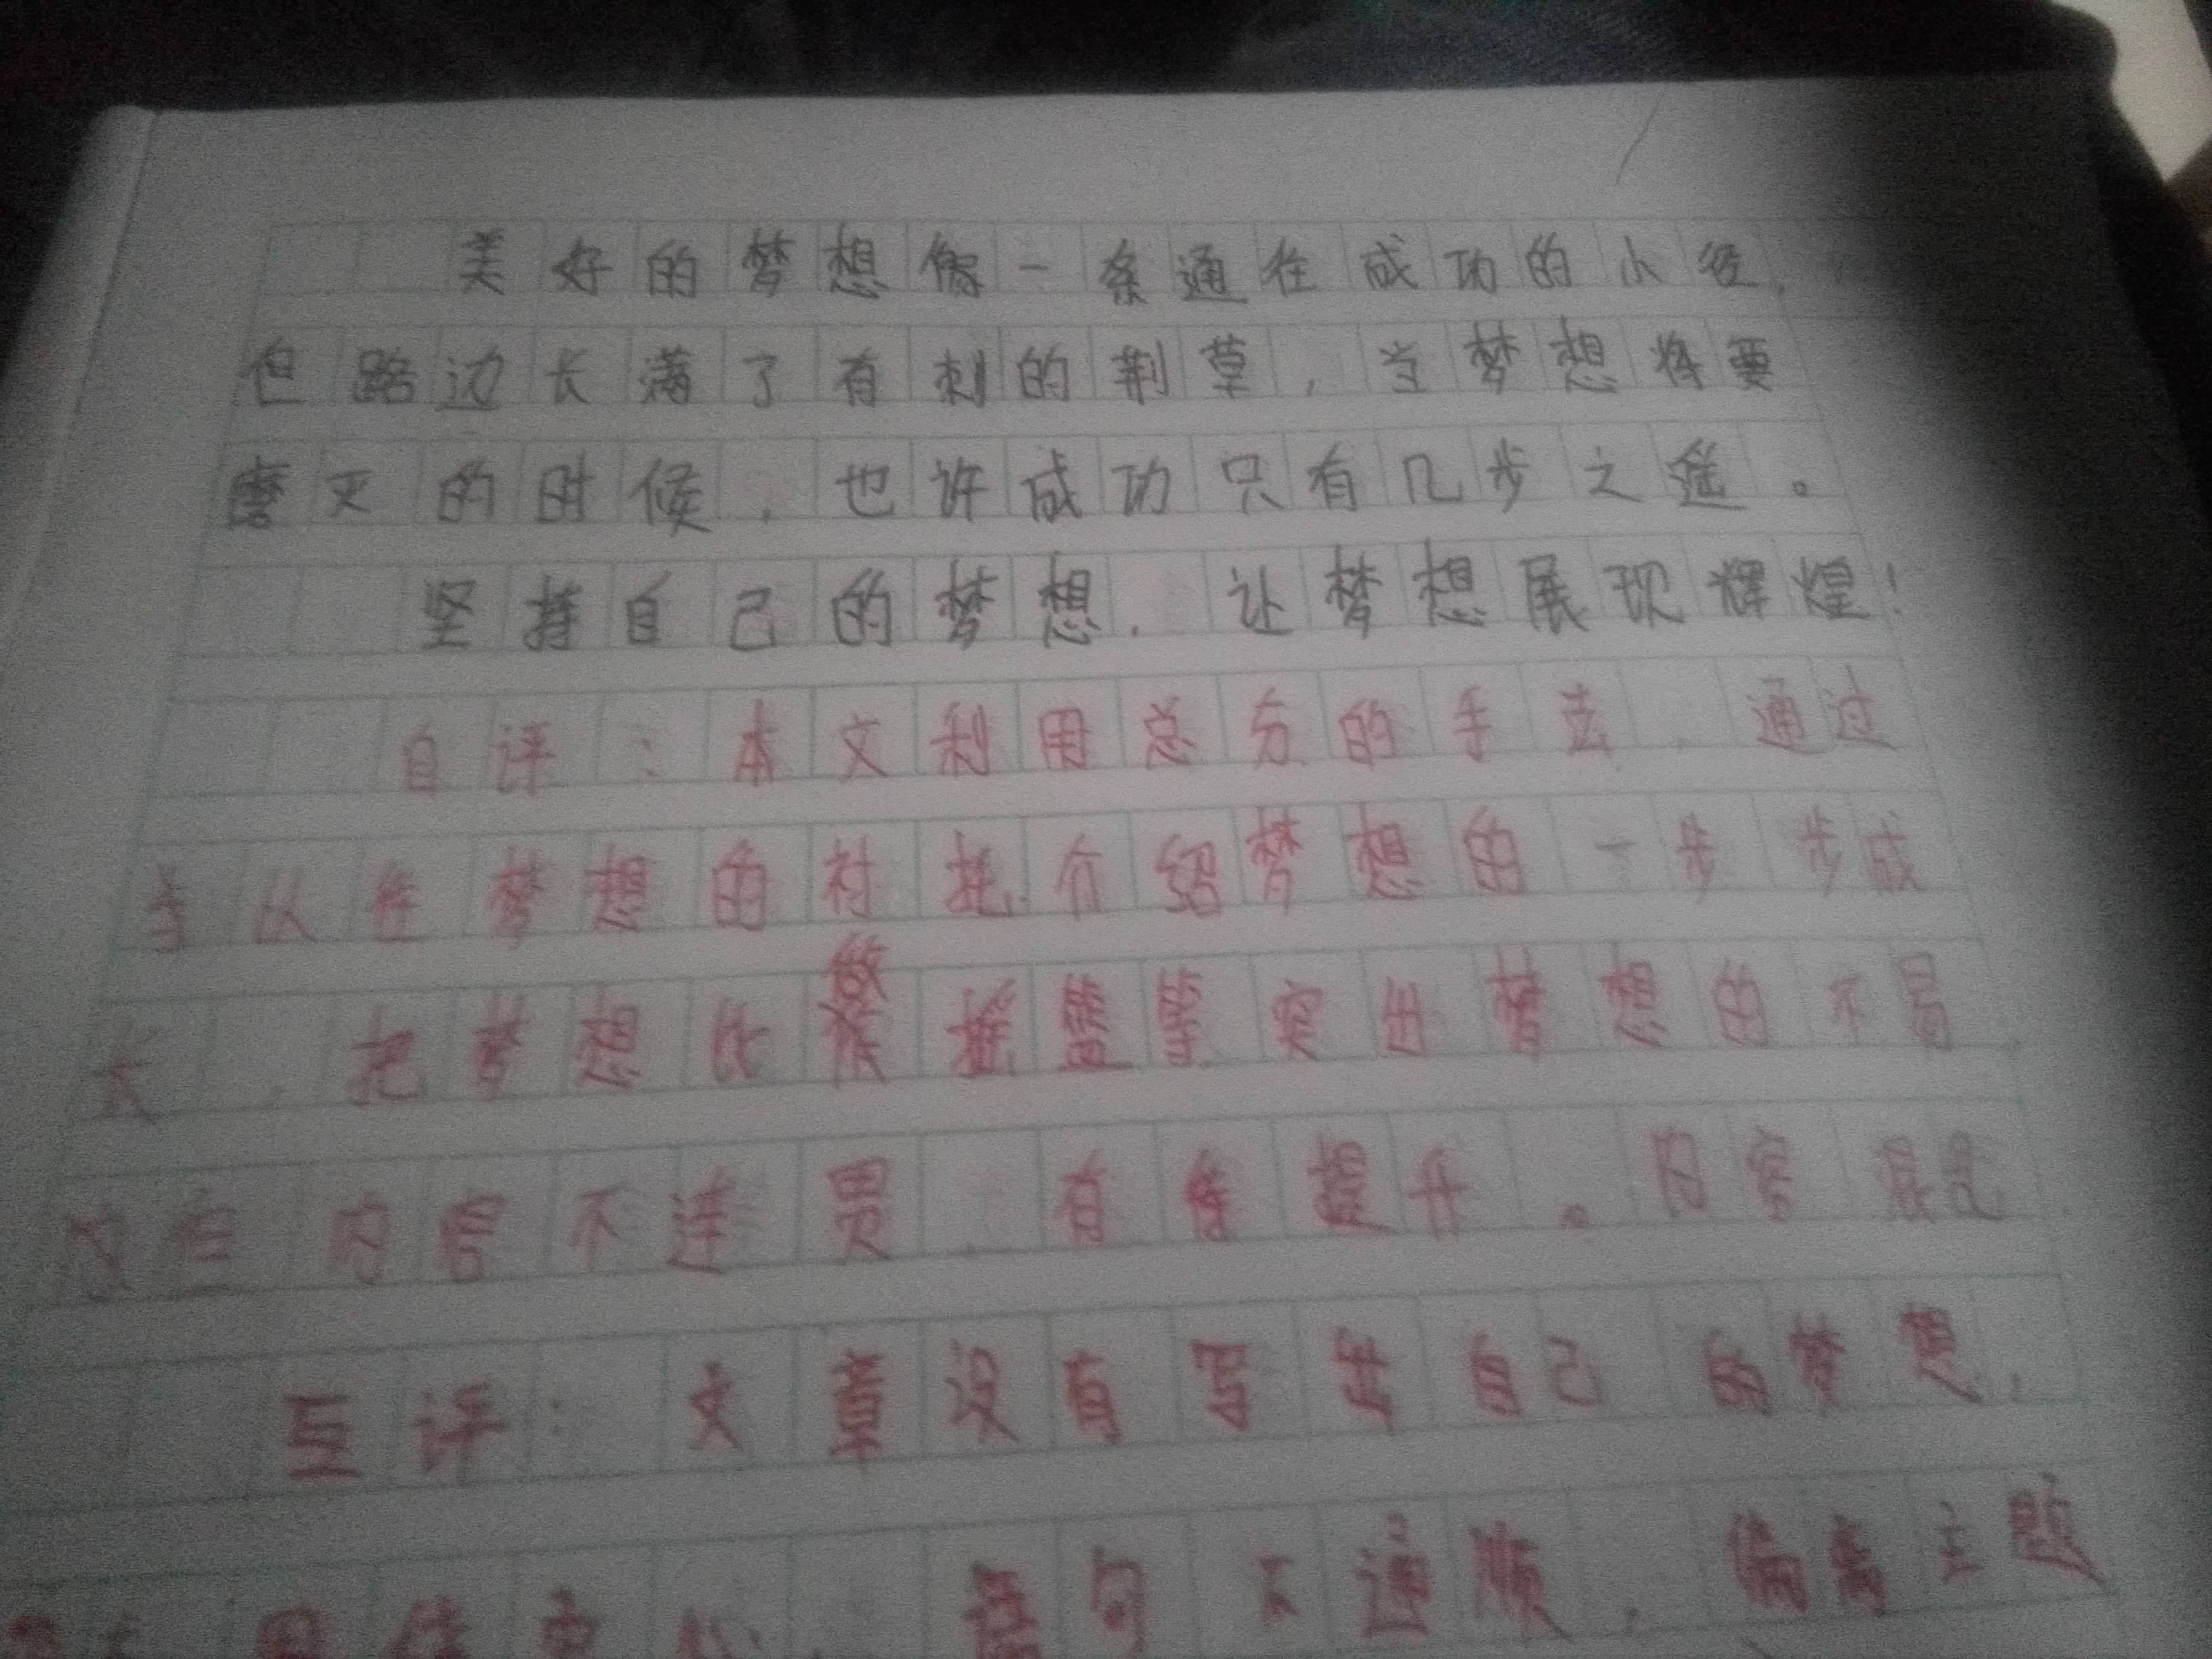 美好的梦想像一条通往成功的小径,
但路边长满了有刺的荆草,当梦想将要
磨灭的时候,也许成功只有几步之遥。
坚持自己的梦想,让梦想展现辉煌!
自评:本文利用总分的手法,通过
梦想的衬托介绍梦想的一步步成
长,把梦想比做摇篮突出梦想的不易
但内容不连贯,有待提升。内容混乱
互评:文章没有写出自己的梦想,
语句不通顺,偏离主题